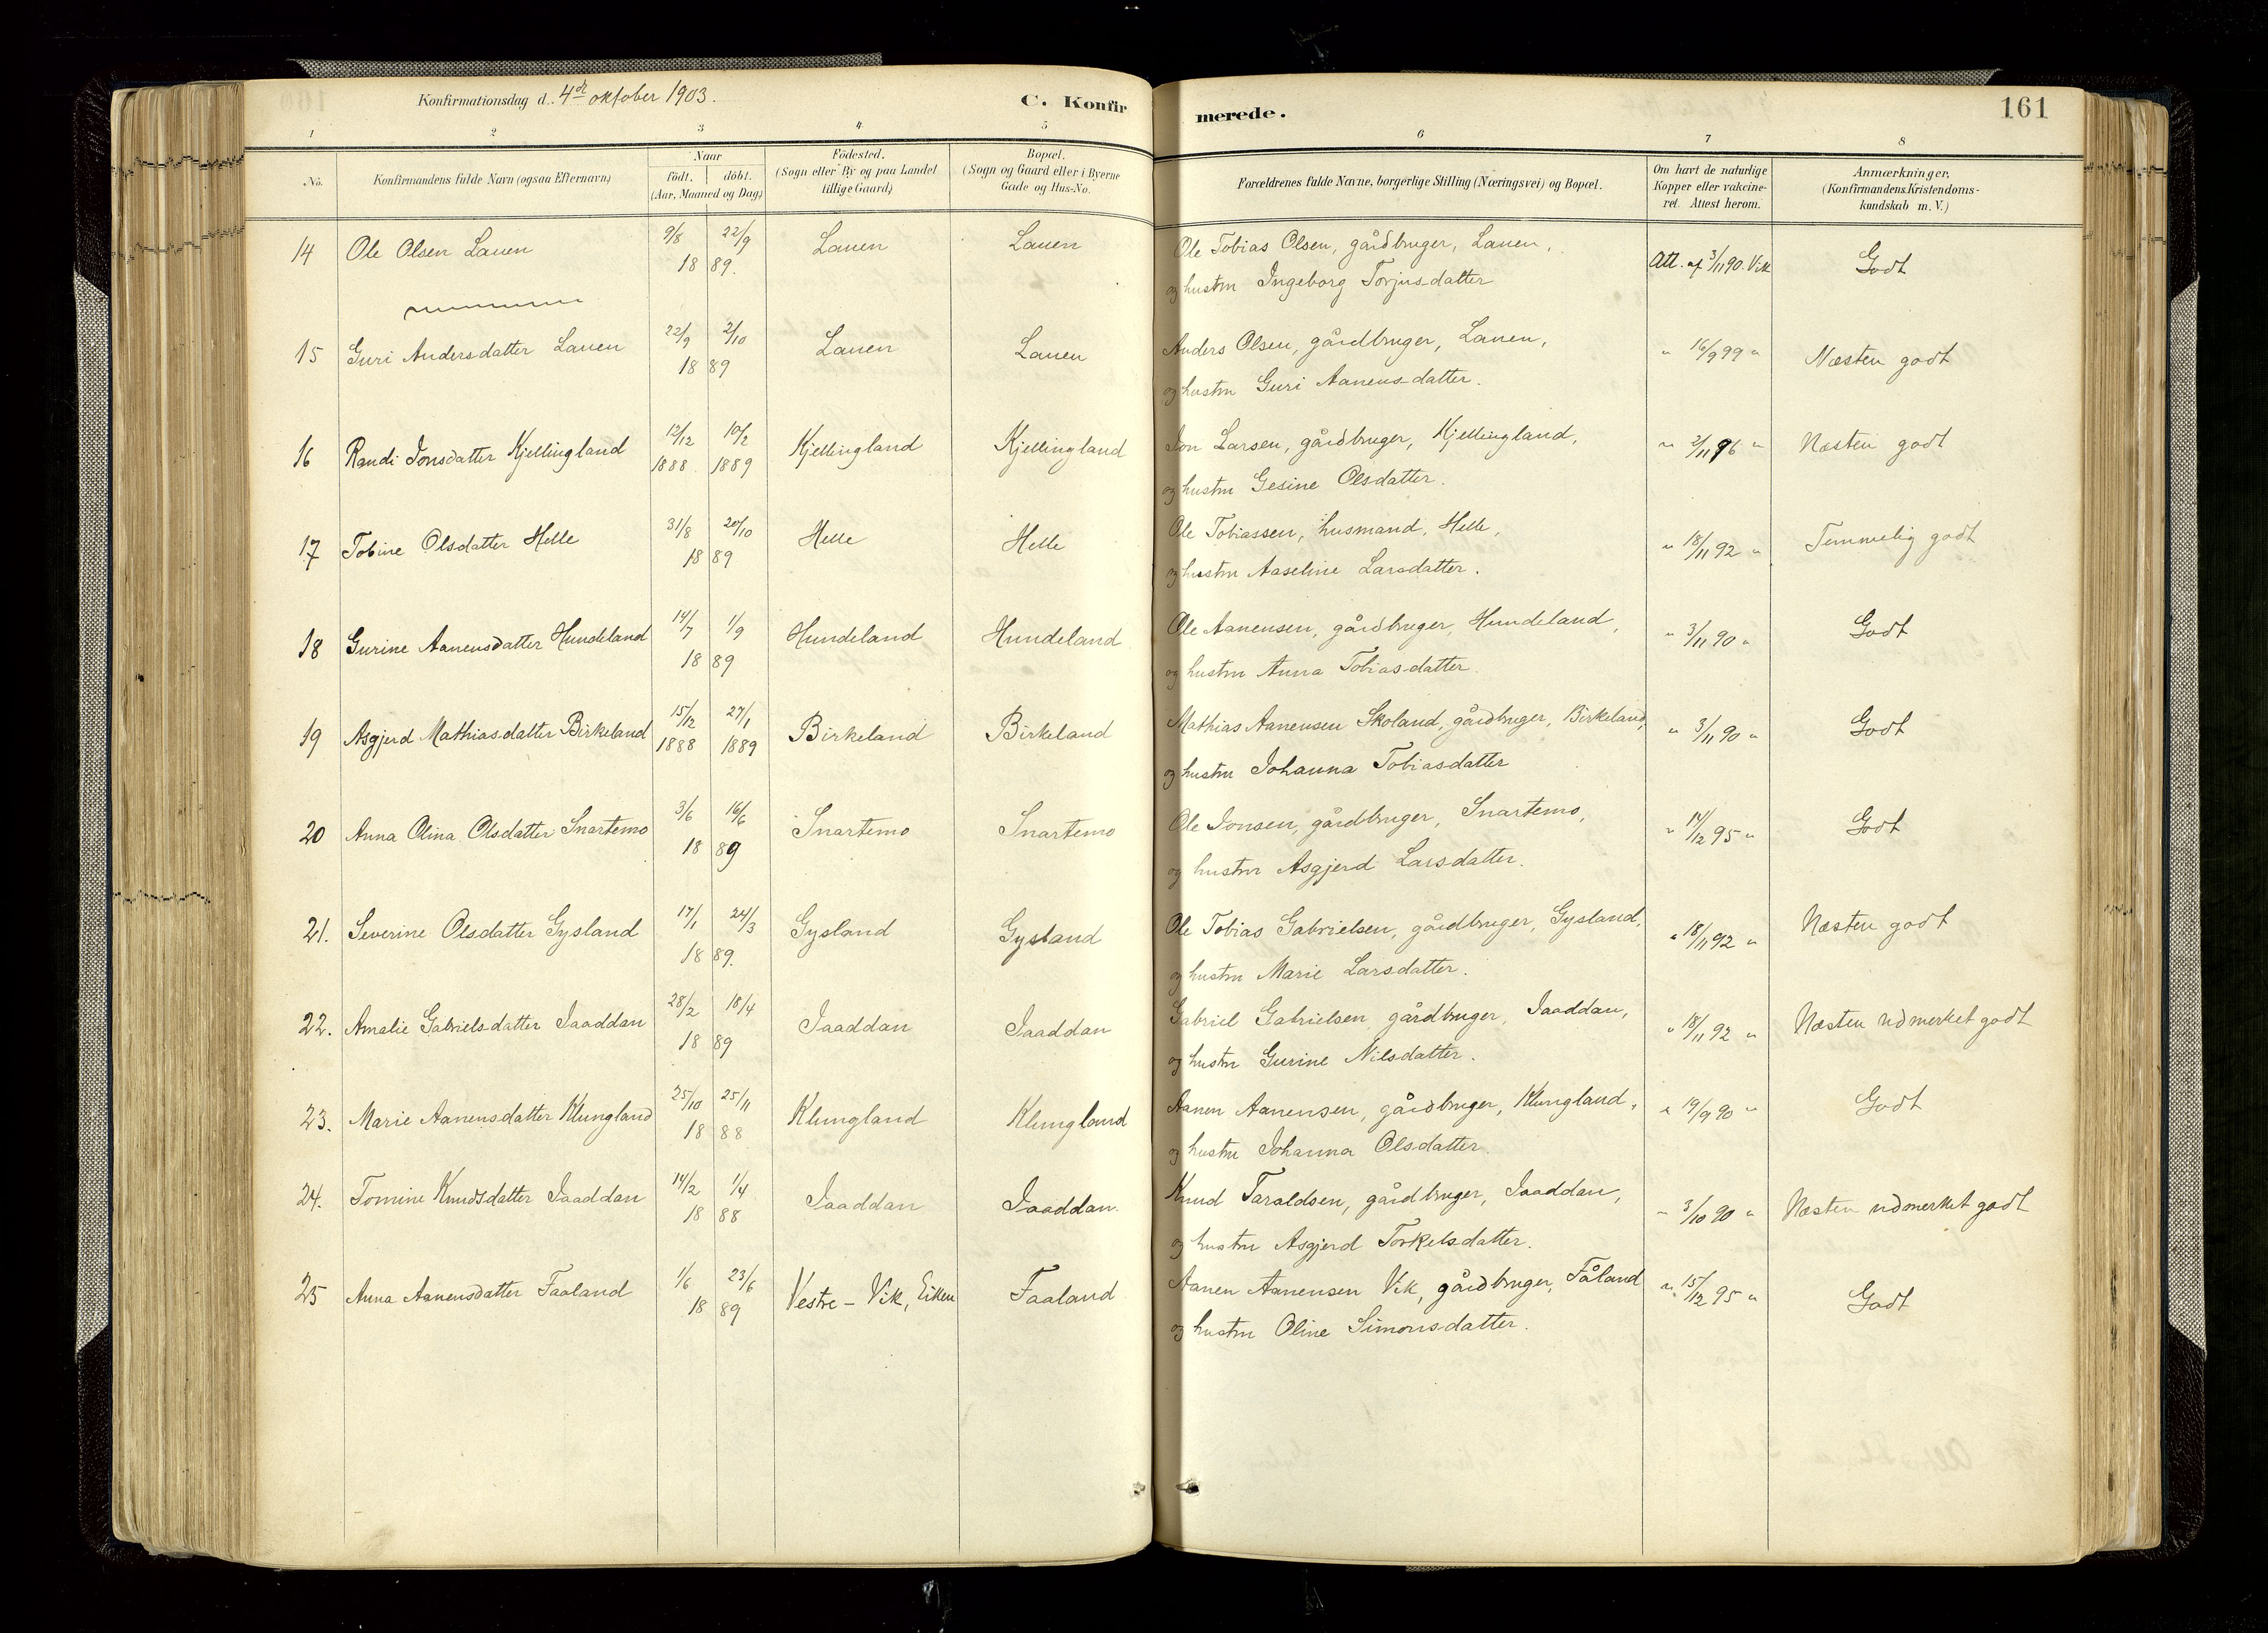 Konfirmationsdag d. 4de oktober 1903.
C. Konfirmerede.
161
1 2 3 4 5 6 7 8
No.
Konfirmandens fulde Navn (ogsaa Efternavn)
Naar
födt. döbt.
(Aar, Maaned og Dag)
Födested.
(Sogn eller By og paa Landet
tillige Gaard)
Bopæl.
(Sogn og Gaard eller i Byerne
Gade og Hus-No.)
Forældrenes fulde Navne, borgerlige Stilling (Næringsvei) og Bopæl.
Om havt de naturlige
Kopper eller vakcine-
ret. Attest herom.
Anmærkninger.
(Konfirmandens Kristendoms-
kundskab m. V.)
14 Ole Olsen Lauen 9/8 22/9 Lauen Lauen Ole Tobias Olsen, gårdbruger, Lauen, Att. af 3/11 90. Vik Godt
18 89. og hustru Ingeborg Torjusdatter
15 Guri Andersdatter Lauen 22/9 2/10 Lauen Lauen Anders Olsen, gårdbruger, Lauen, " 16/9 99 " Næsten godt
18 89 og hustru Guri Aanensdatter.
16 Randi Jonsdatter Kjellingland 12/12 10/2 Kjellingland Kjellingland Jon Larsen, gårdbruger, Kjellingland, " 2/11 96 " Næsten godt
1888. 1889 og hustru Gesine Olsdatter.
17 Tobine Olsdatter Helle 31/8 20/10 Helle Helle Ole Tobiassen, husmand, Helle, " 18/11 92 " Temmelig godt
18 89 og hustru Aaseline Larsdatter.
18 Gurine Aanensdatter Hundeland 14/7 1/9 Hundeland Hundeland Ole Aanensen, gårdbruger, Hundeland, " 3/11 90 " Godt
18 89 og hustru Anna Tobiasdatter.
19 Asgjerd Mathiasdatter Birkeland 15/12 27/1 Birkeland Birkeland Mathias Aanensen Skoland, gårdbruger, Birkeland, " 3/11 90 " Godt
1888 1889 og hustru Johanna Tobiasdatter
20 Anna Olina Olsdatter Snartemo 3/6 16/6 Snartemo Snartemo Ole Jonsen, gårdbruger, Snartemo, " 14/12 95 " Godt
18 89 og hustru Asgjerd Larsdatter.
21. Severine Olsdatter Gysland 17/1 24/3 Gysland Gysland Ole Tobias Gabrielsen, gårdbruger, Gysland, " 18/11 92 " Næsten godt
18 89. og hustru Marie Larsdatter.
22. Amalie Gabrielsdatter Jaaddan 28/2 18/4 Jaaddan Jaaddan Gabriel Gabrielsen gårdbruger, Jaaddan, " 18/11 92 " Næsten udmerket godt
18 89 og hustru Gurine Nilsdatter.
23. Marie Aanensdatter Klungland 25/10 25/11 Klungland Klungland Aanen Aanensen, gårdbruger, Klungland, " 19/9 90 " Godt
18 88 og hustru Johanna Olsdatter.
24. Tomine Knudsdatter Jaaddan 14/2 1/4 Jaaddan Jaaddan. Knud Taraldsen, gårdbruger, Jaaddan, " 3/10 90 " Næsten udmerket godt
18 88 og hustru Asgjerd Torkelsdatter.
25 Anna Aanensdatter Faaland 1/6 23/6 Vestre - Vik, Eiken Faaland Aanen Aanensen Vik, gårdbruger, Fåland " 15/12 95 " Godt
18 89 og hustru Oline Simonsdatter.